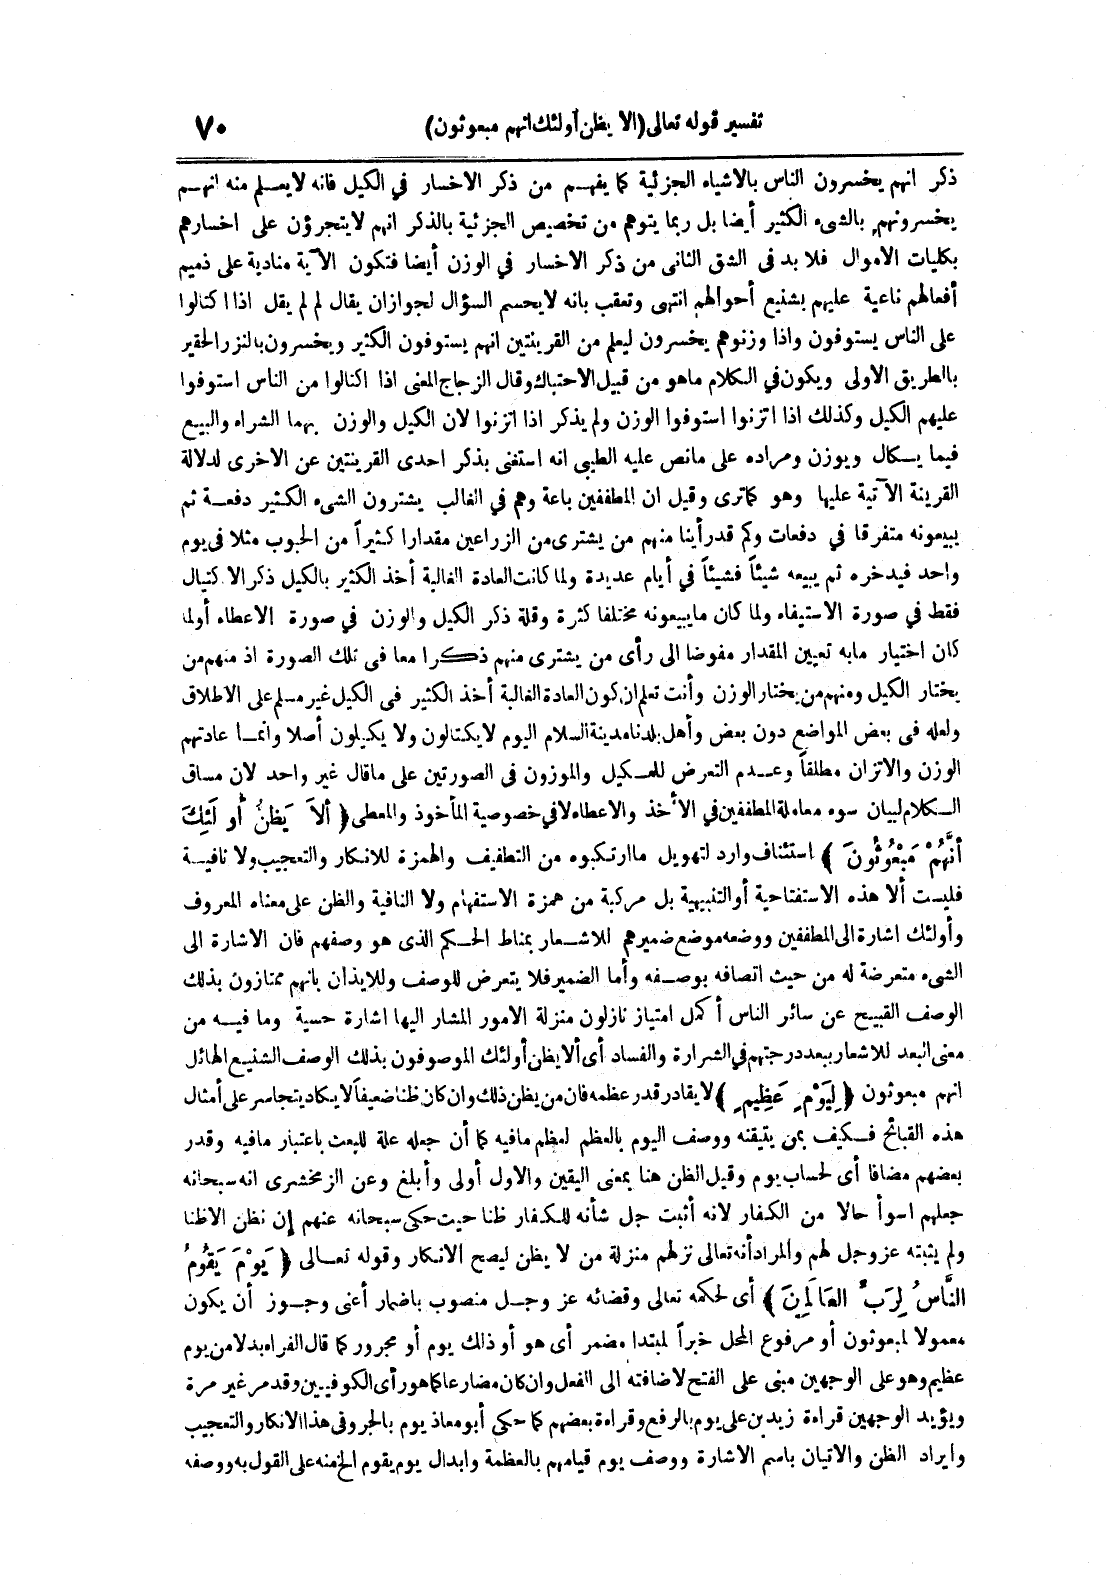 تفسير قوله تعالى (الا يظن أولئك انهم مبعوثون) ٧٠
ذكر انهم يخسرون الناس بالاشياء الجزئية كما يفهم من ذكر الاخسار في الكيل فانه لايعلم منه انهم
يخسرونهم بالشىء الكثير أيضا بل ربما يتوهم من تخصيص الجزئية بالذكر انهم لايتجرؤن على اخسارهم
بكليات الاموال فلا بد فى الشق الثانى من ذكر الاخسار في الوزن أيضا فتكون الآية منادية على ذميم
أفعالهم ناعية عليهم بشنيع أحوالهم انتهى وتعقب بانه لايحسم السؤال لجوازان يقال لم لم يقل اذا اكتالوا
على الناس يستوفون واذا وزنوهم يخسرون ليعلم من القرينتين انهم يستوفون الكثير ويخسرون بالنزر الحقير
بالطريق الاولى ويكون في الكلام ماهو من قبيل الاحتباك وقال الزجاج المعنى اذا اكتالوا من الناس استوفوا
عليهم الكيل وكذلك اذا اتزنوا استوفوا الوزن ولم يذكر اذا اتزنوا لان الكيل والوزن بهما الشراء والبيع
فيما يكال ويوزن ومراده على مانص عليه الطيبى انه استغنى بذكر احدى القرينتين عن الاخرى لدلالة
القرينة الآتية عليها وهو كماترى وقيل ان المطففين باعة وهم في الغالب يشترون الشىء الكثير دفعة ثم
يبيعونه متفرقا في دفعات وكم قدرأينا منهم من يشترى من الزراعين مقدارا كثيراً من الحبوب مثلا فى يوم
واحد فيدخره ثم يبيعه شيئاً فشيئاً في أيام عديدة ولما كانت العادة الغالبة أخذ الكثير بالكيل ذكر الاكتيال
فقط في صورة الاستيفاء ولما كان مايبيعونه مختلفا كثرة وقلة ذكر الكيل والوزن في صورة الاعطاء أولما
كان اختيار مابه تعيين المقدار مفوضا الى رأى من يشترى منهم ذكرا معا فى تلك الصورة اذ منهم من
يختار الكيل ومنهم من يختار الوزن وأنت تعلم ان كون العادة الغالبة أخذ الكثير فى الكيل غير مسلم على الاطلاق
ولعله فى بعض المواضع دون بعض وأهل بلدنا مدينة السلام اليوم لايكتالون ولا يكيلون أصلا وانما عادتهم
الوزن والاتزان مطلقاً وعدم التعرض للمكيل والموزون فى الصورتين على ماقال غير واحد لان مساق
الكلام لبيان سوء معاملة المطففين في الأخذ والاعطاء لا في خصوصية المأخوذ والمعطى ﴿ أَلاَ يَظُنُّ أُولَئِكَ
أَنَّهُمْ مَبْعُوثُونَ ﴾ استئناف وارد لتهويل ماارتكبوه من التطفيف والهمزة للانكار والتعجيب ولا نافية
فليست ألا هذه الاستفتاحية أوالتنبيهية بل مركبة من همزة الاستفهام ولا النافية والظن على معناه المعروف
وأولئك اشارة الى المطففين ووضعه موضع ضميرهم للاشعار بمناط الحكم الذى هو وصفهم فان الاشارة الى
الشىء متعرضة له من حيث اتصافه بوصفه وأما الضمير فلا يتعرض للوصف وللايذان بانهم ممتازون بذلك
الوصف القبيح عن سائر الناس أكمل امتياز نازلون منزلة الامور المشار اليها اشارة حسية وما فيه من
معنى البعد للاشعار ببعد درجتهم في الشرارة والفساد أى ألايظن أولئك الموصوفون بذلك الوصف الشنيع الهائل
انهم مبعوثون ﴿ لِيَوْمٍ عَظِيمٍ ﴾ لايقادر قدر عظمه فان من يظن ذلك وان كان ظنا ضعيفاً لايكاد يتجاسر على أمثال
هذه القبائح فكيف بمن يتيقنه ووصف اليوم بالعظم لعظم مافيه كما أن جعله علة للبعث باعتبار مافيه وقدر
بعضهم مضافا أى لحساب يوم وقيل الظن هنا بمعنى اليقين والاول أولى وأبلغ وعن الزمخشرى انه سبحانه
جعلهم اسوأ حالا من الكفار لانه أثبت جل شأنه للكفار ظنا حيث حكى سبحانه عنهم إن نظن الاظنا
ولم يثبته عز وجل لهم والمراد أنه تعالى نزلهم منزلة من لا يظن ليصح الانكار وقوله تعالى ﴿ يَوْمَ يَقُومُ
النَّاسُ لِرَبِّ العَالَمِينَ ﴾ أى لحكمه تعالى وقضائه عز وجل منصوب باضمار أعنى وجوز أن يكون
معمولا لمبعوثون أو مرفوع المحل خبراً لمبتدا مضمر أى هو أو ذلك يوم أو مجرور كما قال الفراء بدلا من يوم
عظيم وهو على الوجهين مبنى على الفتح لاضافته الى الفعل وان كان مضارعا كما هو رأى الكوفيين وقدمر غير مرة
ويؤيد الوجهين قراءة زيد بن على يوم بالرفع وقراءة بعضهم كما حكى أبو معاذ يوم بالجر وفى هذا الانكار والتعجيب
وايراد الظن والاتيان باسم الاشارة ووصف يوم قيامهم بالعظمة وابدال يوم يقوم الخ منه على القول به ووصفه